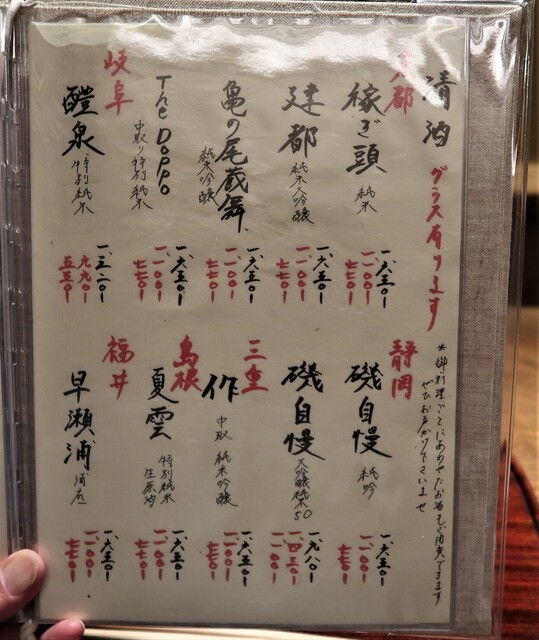 清酒
グラス有ります
※御料理ごとにあわせたお酒もご用意できます
ぜひお声がけくださいませ
京都
稼ぎ頭 純米
一、六五〇-
一、一〇〇-
七七〇-
建都 純米大吟醸
一、六五〇-
一、一〇〇-
七七〇-
亀の尾蔵舞 純米吟醸
一、六五〇-
一、一〇〇-
七七〇-
The DOPPO 中取り特別純米
一、六五〇-
一、一〇〇-
七七〇-
岐阜
醴泉 特別純米
一、三二〇-
九九〇-
五五〇-
静岡
磯自慢 純吟
一、六五〇-
一、一〇〇-
七七〇-
磯自慢 大吟醸純米50
一、九八〇-
一、四三〇-
三重
作 中取 純米吟醸
一、六五〇-
一、一〇〇-
七七〇-
島根
夏雲 特別純米 生原酒
一、六五〇-
一、一〇〇-
七七〇-
福井
早瀬浦 浦底
一、六五〇-
一、一〇〇-
七七〇-